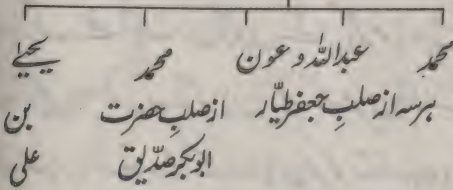 محمد عبداللہ و عون محمد یحییٰ
ہر سہ از صلبِ جعفر طیّار از صلبِ حضرت بن
ابوبکر صدّیق علی